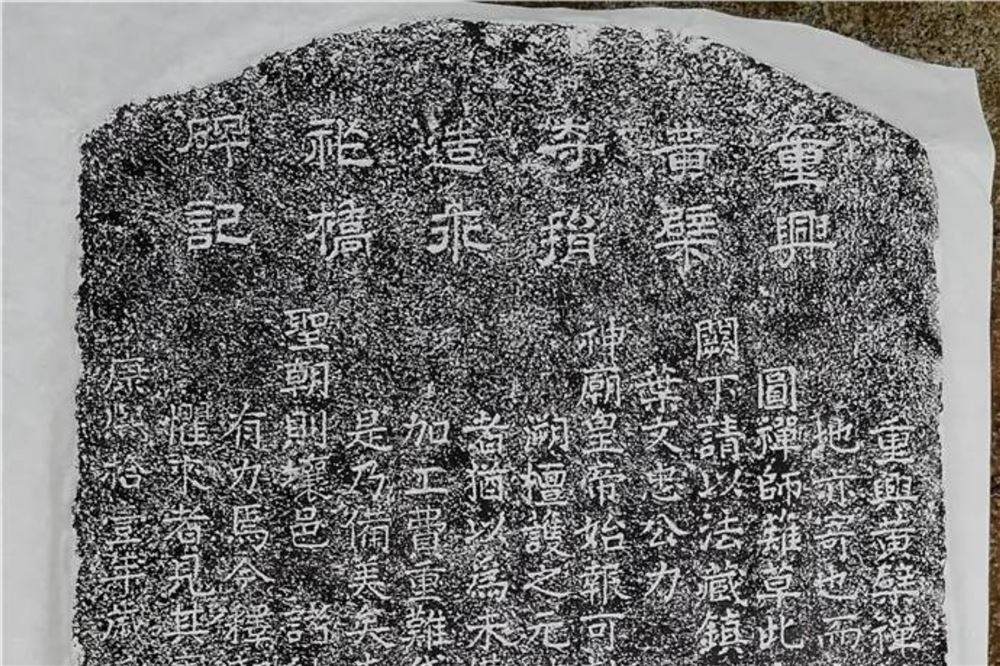 重興
黃檗
寺捐
造來
龍橋
碑記
重興黃檗禪
地亦寄也而
圓禪師薙草此
闕下請以法藏鎮
葉文忠公力
神廟皇帝始報可
檀護之元
者猶以為未
加工費重難
是乃備美矣
聖朝則壤邑
有力焉今
懼來者見其
康熙拾壹年歲